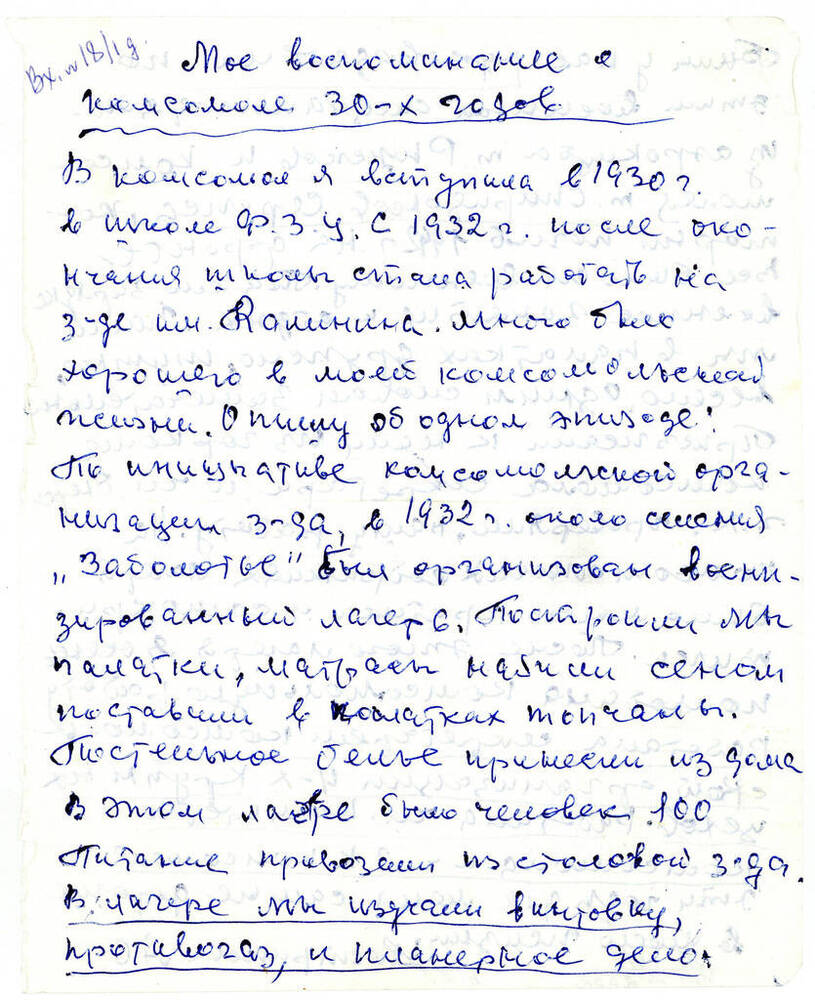 Вх. № 18/19
Мое воспоминание о
комсомоле 30-х годов
В комсомол я вступила в 1930 г.
в школе Ф.З.У. С 1932 г. после око-
нчания школы стала работать на
з-де им. Калинина. Много было
хорошего в моей комсомольской
жизни. Опишу об одном эпизоде:
По иницыативе комсомольской орга-
низации з-да, в 1932 г. около селения
„Заболотье" был организован воени-
зированный лагерь. Построили мы
палатки, матрасы набили сеном
поставили в полатках топчаны.
Постельное белье принесли из дома
В этом лагере было человек 100
Питание привозили из столовой з-да.
В лагере мы изучали винтовку,
противогаз, и планерное дело.